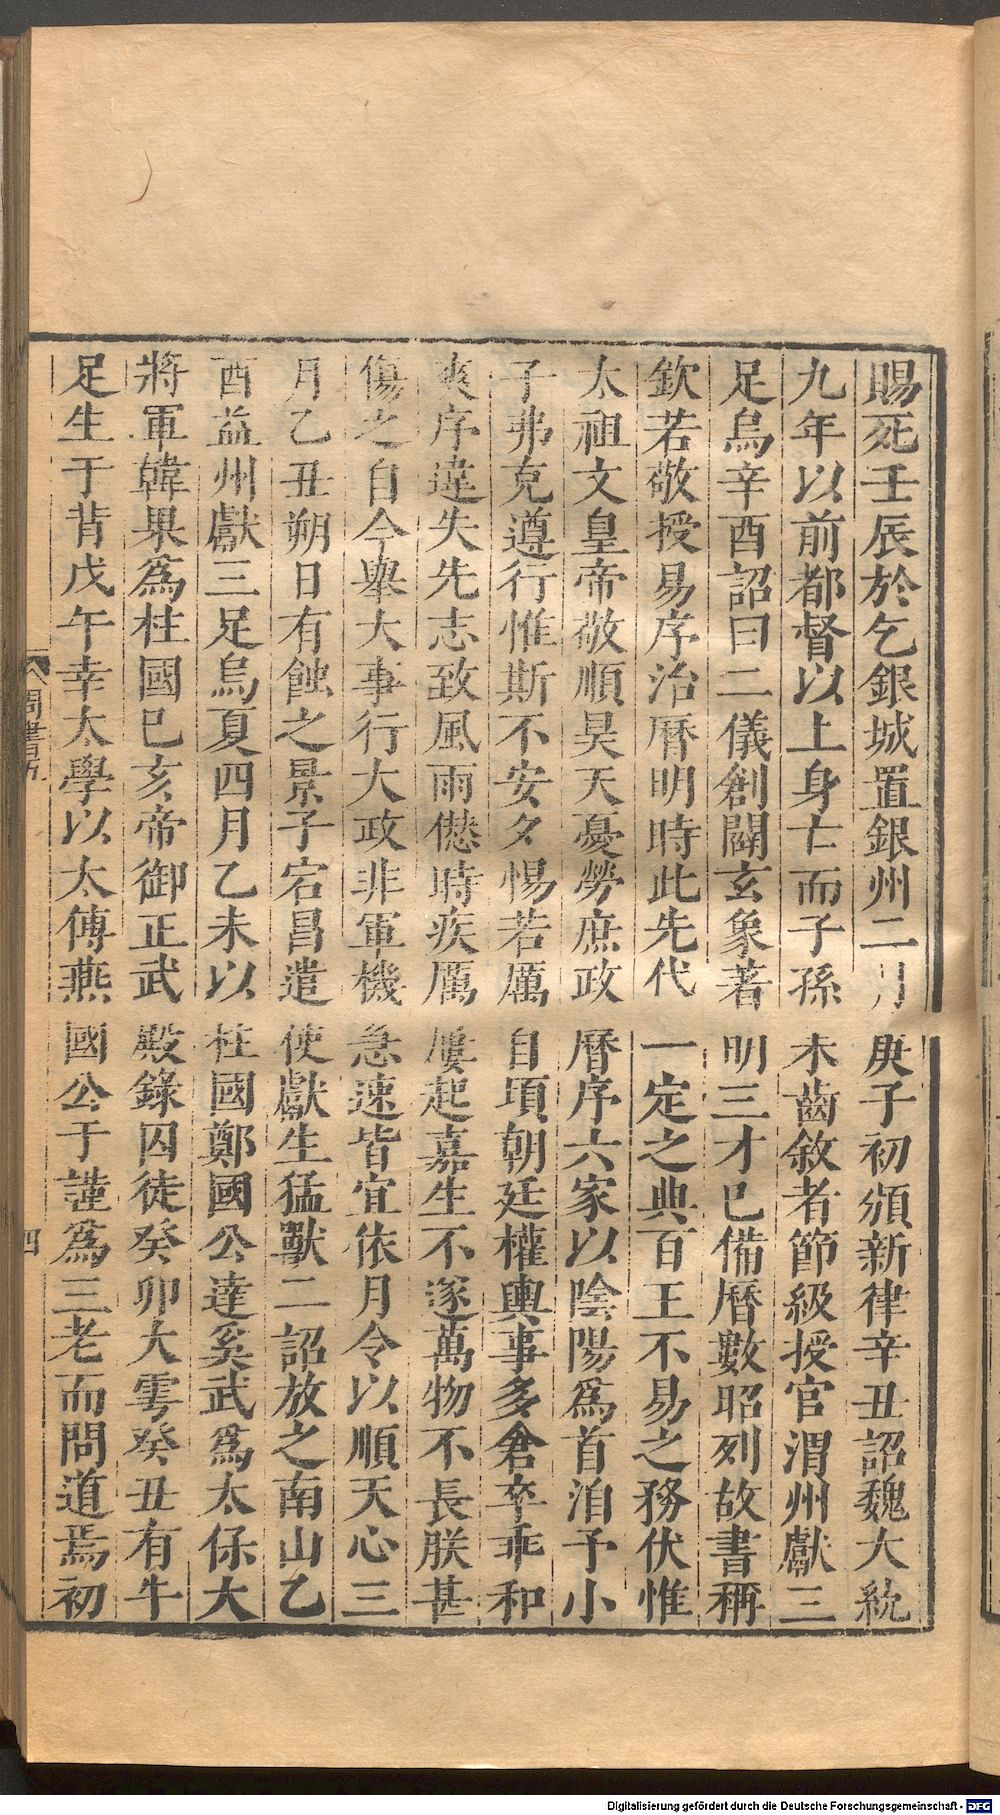 賜死壬辰於乞銀城置銀州二月庚子初頒新律辛丑詔魏大統
九年以前都督以上身亡而子孫未齒敘者節級授官渭州獻三
足烏辛酉詔曰二儀創闢玄象著明三才已備曆數昭列故書稱
欽若敬授易序治曆明時此先代一定之典百王不易之務伏惟
太祖文皇帝敬順昊天憂勞庶政曆序六家以陰陽爲首洎予小
子弗克遵行惟斯不安夕惕若厲自頃朝廷權輿事多倉卒乖和
爽序違失先志致風雨愆時疾厲屢起嘉生不遂萬物不長朕甚
傷之自今舉大事行大政非軍機急速皆宜依月令以順天心三
月乙丑朔日有蝕之景子宕昌遣使獻生猛獸二詔放之南山乙
酉益州獻三足烏夏四月乙未以柱國鄭國公達奚武爲太保大
將軍韓果爲柱國已亥帝御正武殿錄囚徒癸卯大雩癸丑有牛
足生于背戊午幸太學以太傅燕國公于謹爲三老而問道焉初
周書五
四
Digitalisierung gefördert durch die Deutsche Forschungsgemeinschaft - DFG